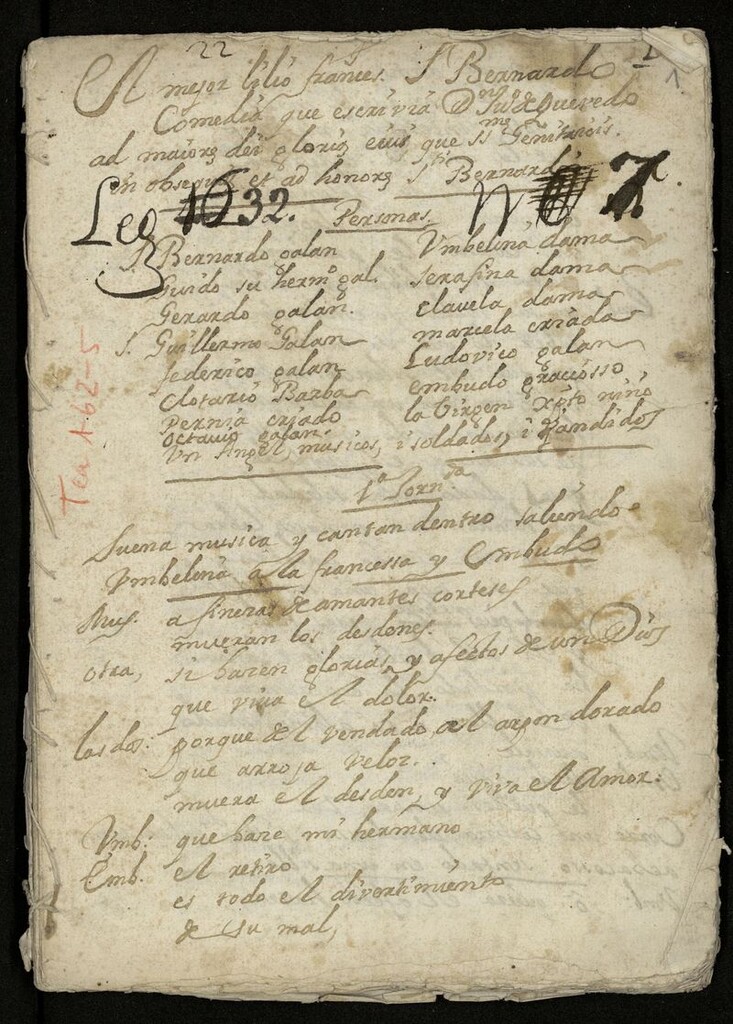 22
1
1
El mejor lilio frances. S. Bernardo
Comedia que escrivia Dn. Juo. de Quevedo
ad maiorẽ dei gloriã eius que SSme. Genitricis.
in obsequiũ et ad honorẽ Sti. Bernardi
Leg 1632. No 7
Personas
S. Bernardo galan
Guido su hermo. gal.
Gerardo galan.
S. Guillermo Galan
federico galan
Clotario Barba
Pernia criado
Octavio galan.
Vmbelina dama
serafina dama
clavela dama
marcela criada
Ludovico galan
embudo graciosso
la Virgen Xpto niño
Vn Angel, musicos, i soldados, i Vandidos
Tea 1-62-5
1ª Jornda
Suena musica y cantan dentro saliendo
Vmbelina a la francessa y Embudo
Mus. a finezas de amantes corteses
mueran los desdenes.
otra, si hazen glorias, y afectos de un Dios
que viva el dolor.
los dos: porque del vendado, al arpon dorado
que arroja veloz.
muera el desden, y viva el Amor.
Vmb: que haze mi hermano
Emb. el retiro
es todo el divertimiento
de su mal,